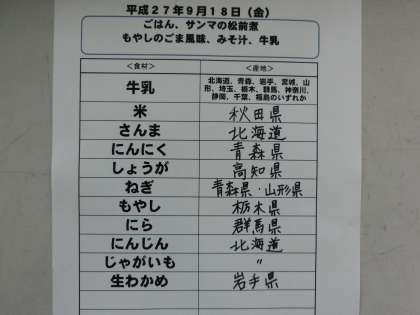 平成27年9月18日(金)
ごはん、サンマの松前煮
もやしのごま風味、みそ汁、牛乳
<食材> <産地>
牛乳 北海道、青森、岩手、宮城、山
形、埼玉、栃木、群馬、神奈川、
静岡、千葉、福島のいずれか
米 秋田県
さんま 北海道
にんにく 青森県
しょうが 高知県
ねぎ 青森県・山形県
もやし 栃木県
にら 群馬県
にんじん 北海道
じゃがいも 〃
生わかめ 岩手県